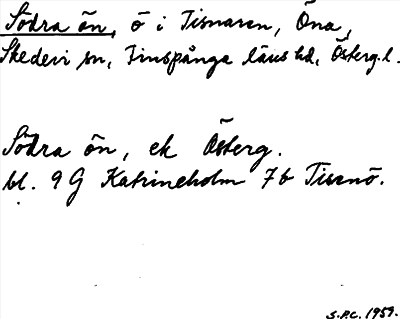 Södra ön, ö i Tisnaren, Öna,
Skedevi sn, Finspånga läns hd, Österg.l.
Södra ön, ek Österg.
bl. 9 G Katrineholm 7 b Tisenö.
S.P.C. 1959.